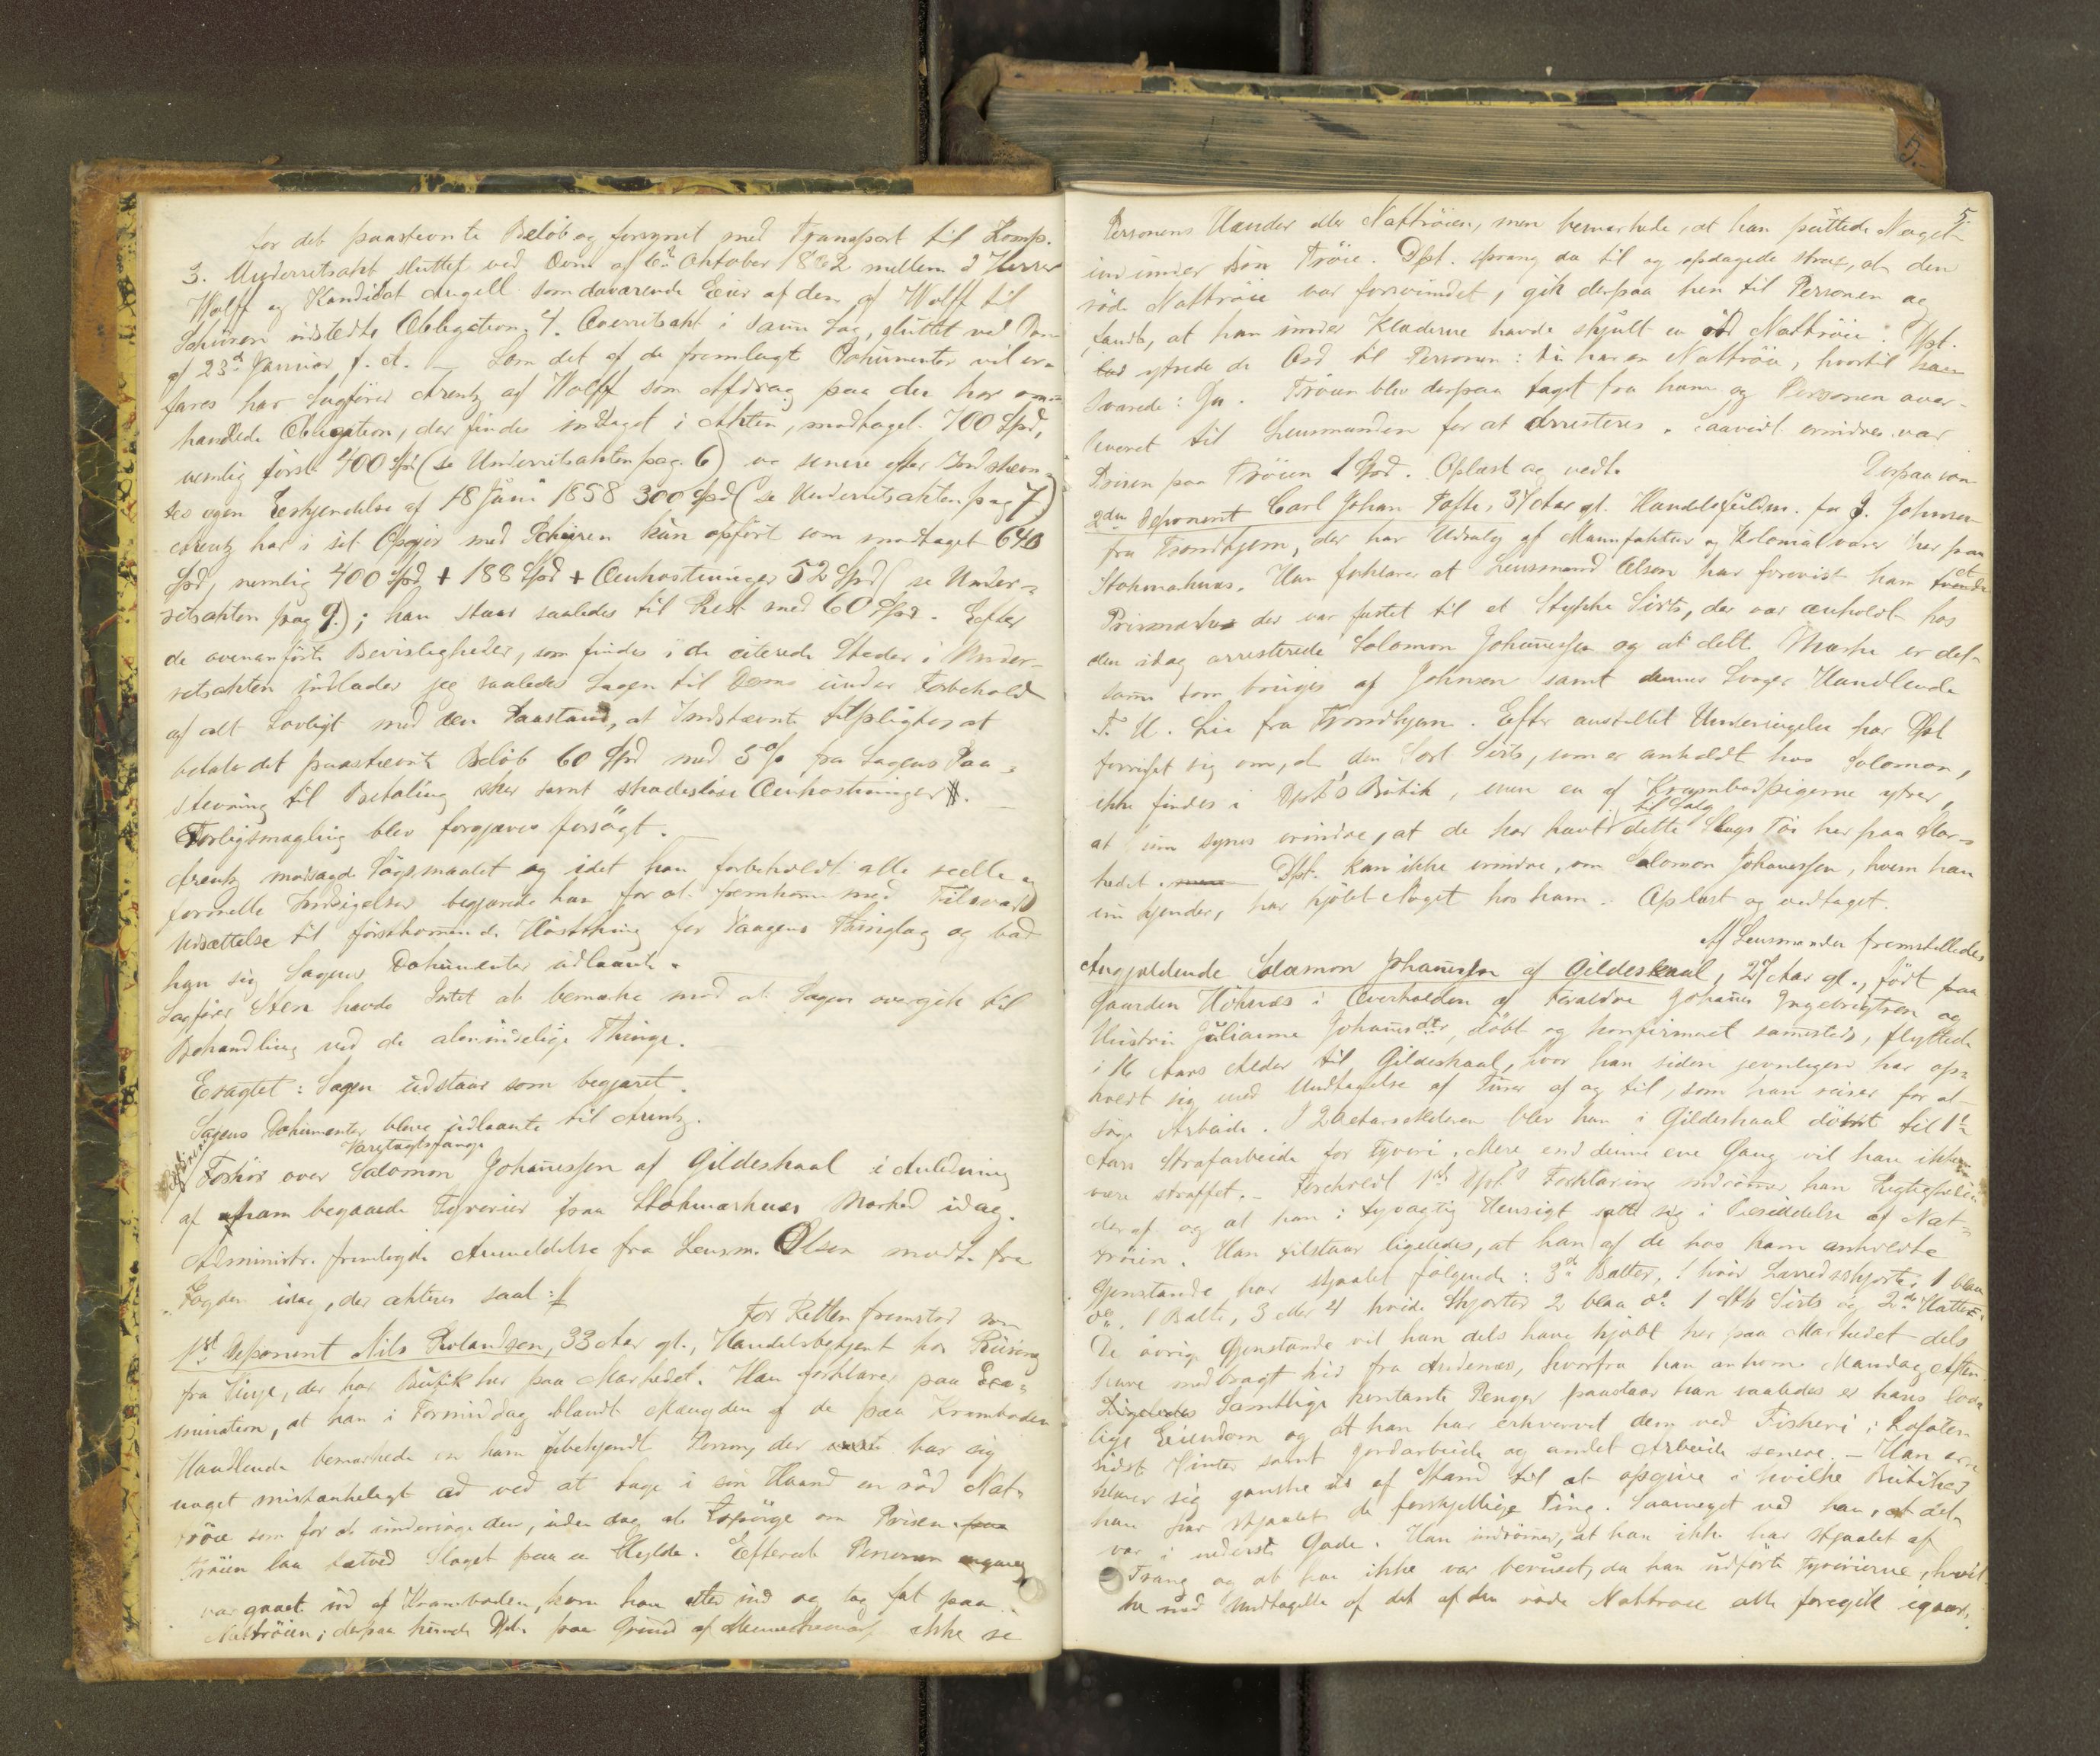 for det paastevnte Beløb og forsynet med Transport til Komp.
3. Underretsakt sluttet ved Dom af 6te Oktober 1862 mellem d Herrer
Wolff og Kandidat Angell som daværende Eier af den af Wolff til
Schüren udstedte Obligation. 4. Overretsakt i samme Sag, sluttet ved Dom
af 23de Januar f. A. – Som det af de fremlagte Dokumenter vil er-
fares har Sagfører Arentz af Wolff som Afdrag paa den her om-
handlede Obligation, der findes indtaget i Akten, modtaget 700 Spd,
nemlig først 400 Spd (se Underretsakten pag. 6) og senere efter Indstevn-
tes egen Erkjendelse af 18 Juni 1858 300 Spd (se Underretsakten pag 7)
Arentz har i sit Opgjør med Schüren kun opført som modtaget 640
Spd, nemlig 400 Spd + 188 Spd + Omkostninger 52 Spd (se Under-
retsakten pag 9.); han staar saaledes til Rest med 60 Spd. Efter
de ovenanførte Bevisligheder, som findes i de citerede Steder i Under-
retsakten indlader jeg saaledes Sagen til Doms under Forbehold
af alt Lovligt med den Paastand, at Indstævnte tilpligtes at
betale det paastævnte Beløb 60 Spd med 5 % fra Sagens Paa-
stevning til Betaling sker samt skadesløse Omkostninger.
Forligsmægling blev forgjæves forsøgt.
Arentz modsagde Søgsmaalet og idet han forbeholdt alle reelle og
formelle Indsigelser begjærede han for at fremkomme med Tilsvar
Udsættelse til førstkommende Høstthing for Vaagens Thinglag og bad
han sig Sagens Dokumenter udlaante.
Sagfører Steen havde Intet at bemærke mod at Sagen overgik til
Behandling ved de almindelige Thinge.
Eragtet: Sagen udstaar som begjæret.
Sagens Dokumenter bleve udlaante til Arentz.
Varetægtsfange
Forhør over Salomon Johannessen af Gildeskaal i Anledning
af af ham begaaede Tyverier paa Stokmarknes Marked idag.
Administr. fremlagde Anmeldelse fra Lensm. Olsen modt. fra
Fogden idag, der akteres saal:
For Retten fremstod som
1st Deponent Nils Rolandsen, 33 Aar gl., Handelsbetjent hos Riising
fra Tinje, der har Butik her paa Markedet. Han forklarer paa Exa-
mination, at han i Formiddag blandt Mængden af de paa Kramboden
Handlende bemærkede en ham ubekjendt Person, der bar sig
noget mistænkeligt ad ved at tage i sin Haand en rød Nat-
trøie som for at undersøge den, uden dog at Forspørge om Prisen
Trøien laa tætved Slaget paa en Hylde. Efterat Personen engang
var gaaet ud af Kramboden, kom han atter ind og tog fat paa
Nattrøien; derpaa kunde Dpt. paa Grund af Menneskemasse ikke se
5.
Personens Hænder eller Nattrøien, men bemærkede, at han puttede Noget
ind under sin Trøie. Dpt. sprang da til og opdagede strax, at den
røde Nattrøie var forsvundet, gik derpaa hen til Personen og
fandt, at han under Klæderne havde skjult en rød Nattrøie. Dpt.
ytrede de Ord til Personen: Du har en Nattrøie, hvortil han
svarede: Ja. Trøien blev derpaa taget fra ham og Personen over-
leveret til Lensmanden for at arresteres. Saavidt erindres var
Prisen paa Trøien 1 Spd. Oplæst og vedt. Derpaa som
2den Deponent Carl Johan Tofte, 37 Aar gl. Handelsfuldm. for J. Johnsen
fra Trondhjem, der har Udsalg af Manufaktur og Kolonialvarer her paa
Stokmarknes. Han forklarer at Lensmand Olsen har forevist ham et
Prismærke der var fæstet til et Stykke Sirts, der var anholdt hos
den idag arresterede Salomon Johannessen og at dette Mærke er det-
samme som bruges af Johnsen samt dennes Svoger Handlende
F. H. Lie fra Trondhjem. Efter anstillet Undersøgelse har Dpt
forvisset sig om, at den Sort Sirts, som er anholdt hos Salomon,
ikke findes i Dpt's Butik, men en af Krambodpigerne ytrer,
at hun synes erindre, at de har havt til Salg dette Slags Tøi her paa Mar-
kedet. Dpt. kan ikke erindre, om Salomon Johannessen, hvem han
nu kjender, har kjøbt Noget hos ham. Oplæst og vedtaget.
Af Lensmanden fremstilledes
Angjældende Salomon Johannessen af Gildeskaal, 27 Aar gl., født paa
Gaarden Høknes i Overhalden af Forældre Johannes Ingebrigtsen og
Hustru Julianne Johannesdtr, døbt og konfirmeret sammesteds, flyttede
i 16 Aars Alder til Gildeskaal, hvor han siden jevnligen har op-
holdt sig med Undtagelse af Turer af og til, som han reiser for at
søge Arbeide. I 20 Aarsalderen blev han i Gildeskaal dømt til 1t
Aars Strafarbeide for Tyveri. Mere end denne ene Gang vil han ikke
være straffet. – Foreholdt 1st Dpts Forklaring indrømmer han Rigtigheden
deraf og at han i tyvagtig Hensigt satte sig i Besiddelse af Nat-
trøien. Han tilstaar ligeledes, at han af de hos ham anholdte
Gjenstande har stjaalet følgende: 3de Balter, 1 hvid Lærredsskjorte, 1 blaa
do. 1 Balte, 3 eller 4 hvide Skjorter 2 blaa do 1 Stk Sirts og 2de Hatte.
De øvrige Gjenstande vil han dels have kjøbt her paa Markedet dels
have medbragt hid fra Andenæs, hvorfra han ankom Mandag Aften
Samtlige kontante Penger paastaar han saaledes er hans lov-
lige Eiendom og at han har erhvervet dem ved Fiskeri i Lofoten
sidst Vinter samt Jordarbeide og andet Arbeide senere. – Han er-
klærer sig ganske ud af Stand til at opgive i hvilke Butiker
han har stjaalet de forskjellige Ting. Saameget ved han, at det
var i nederste Gade. Han indrømmer, at han ikke har stjaalet af
Trang og at han ikke var beruset, da han udførte Tyverierne, hvil-
ke med Undtagelse af det af den røde Nattrøie alle foregik igaar.